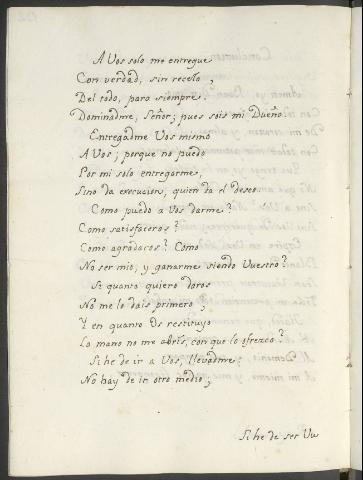 A Vos solo me entregue
Con verdad, sin recelo,
Del todo, para siempre.
Dominadme, Señor; pues sois mi Dueño.
Entregadme Vos mismo
A Vos; porque no puedo
Por mi solo entregarme,
Sino da execucion, quien da el deseo.
Como puedo a Vos darme?
Como satisfaceros?
Como agradaros? Como
No ser mio, y ganarme siendo Vuestro?
Si quanto quiero daros
No me lo dais primero;
Y en quanto Os restituyo
La mano no me abris, con que lo ofrezco?
Si he de ir a Vos, llevadme;
No hay de ir otro medio;
Si he de ser Vu